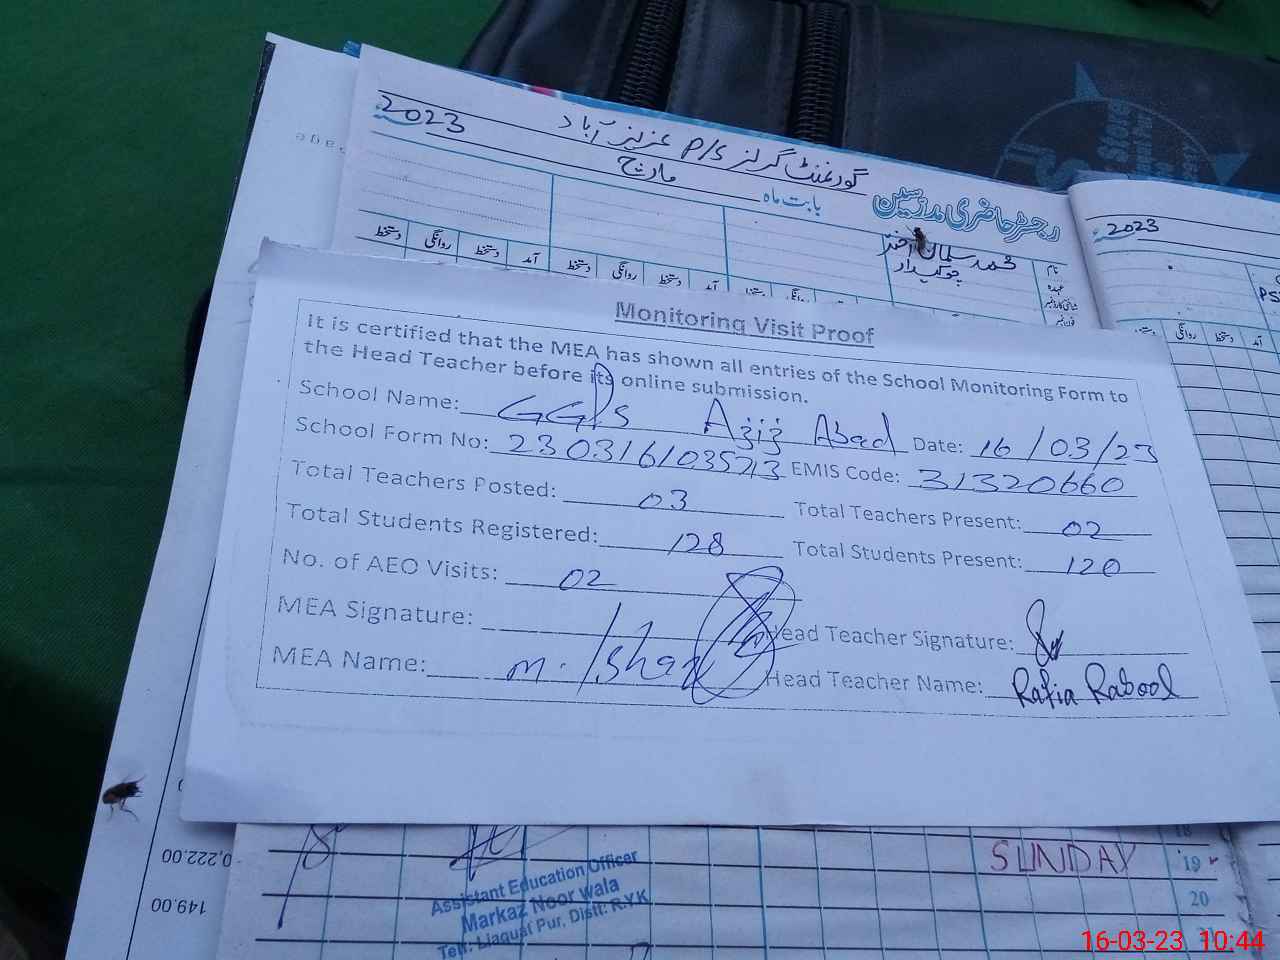 2023
گورنمنٹ گرلز P/S عزیز آباد
بابت ماہ مارچ
رجسٹر حاضری مدرسین
2023
محمد سلمان اختر
چوکیدار
نام
عہدہ
دستخط روانگی دستخط آمد دستخط روانگی دستخط آمد
روانگی دستخط آمد
Monitoring Visit Proof
It is certified that the MEA has shown all entries of the School Monitoring Form to
the Head Teacher before its online submission.
School Name: GGPS Aziz Abad Date: 16/03/23
School Form No: 2303161035213 EMIS Code: 31320660
Total Teachers Posted: 03 Total Teachers Present: 02
Total Students Registered: 128 Total Students Present: 120
No. of AEO Visits: 02
MEA Signature: Head Teacher Signature:
MEA Name: M. Ishaq Head Teacher Name: Rafia Rabool
18
SUNDAY 19
20
Assistant Education Officer
Markaz Noor Wala
Teh: Liaquat Pur, Distt: R.Y.K
0,222.00
149.00
16-03-23 10:44